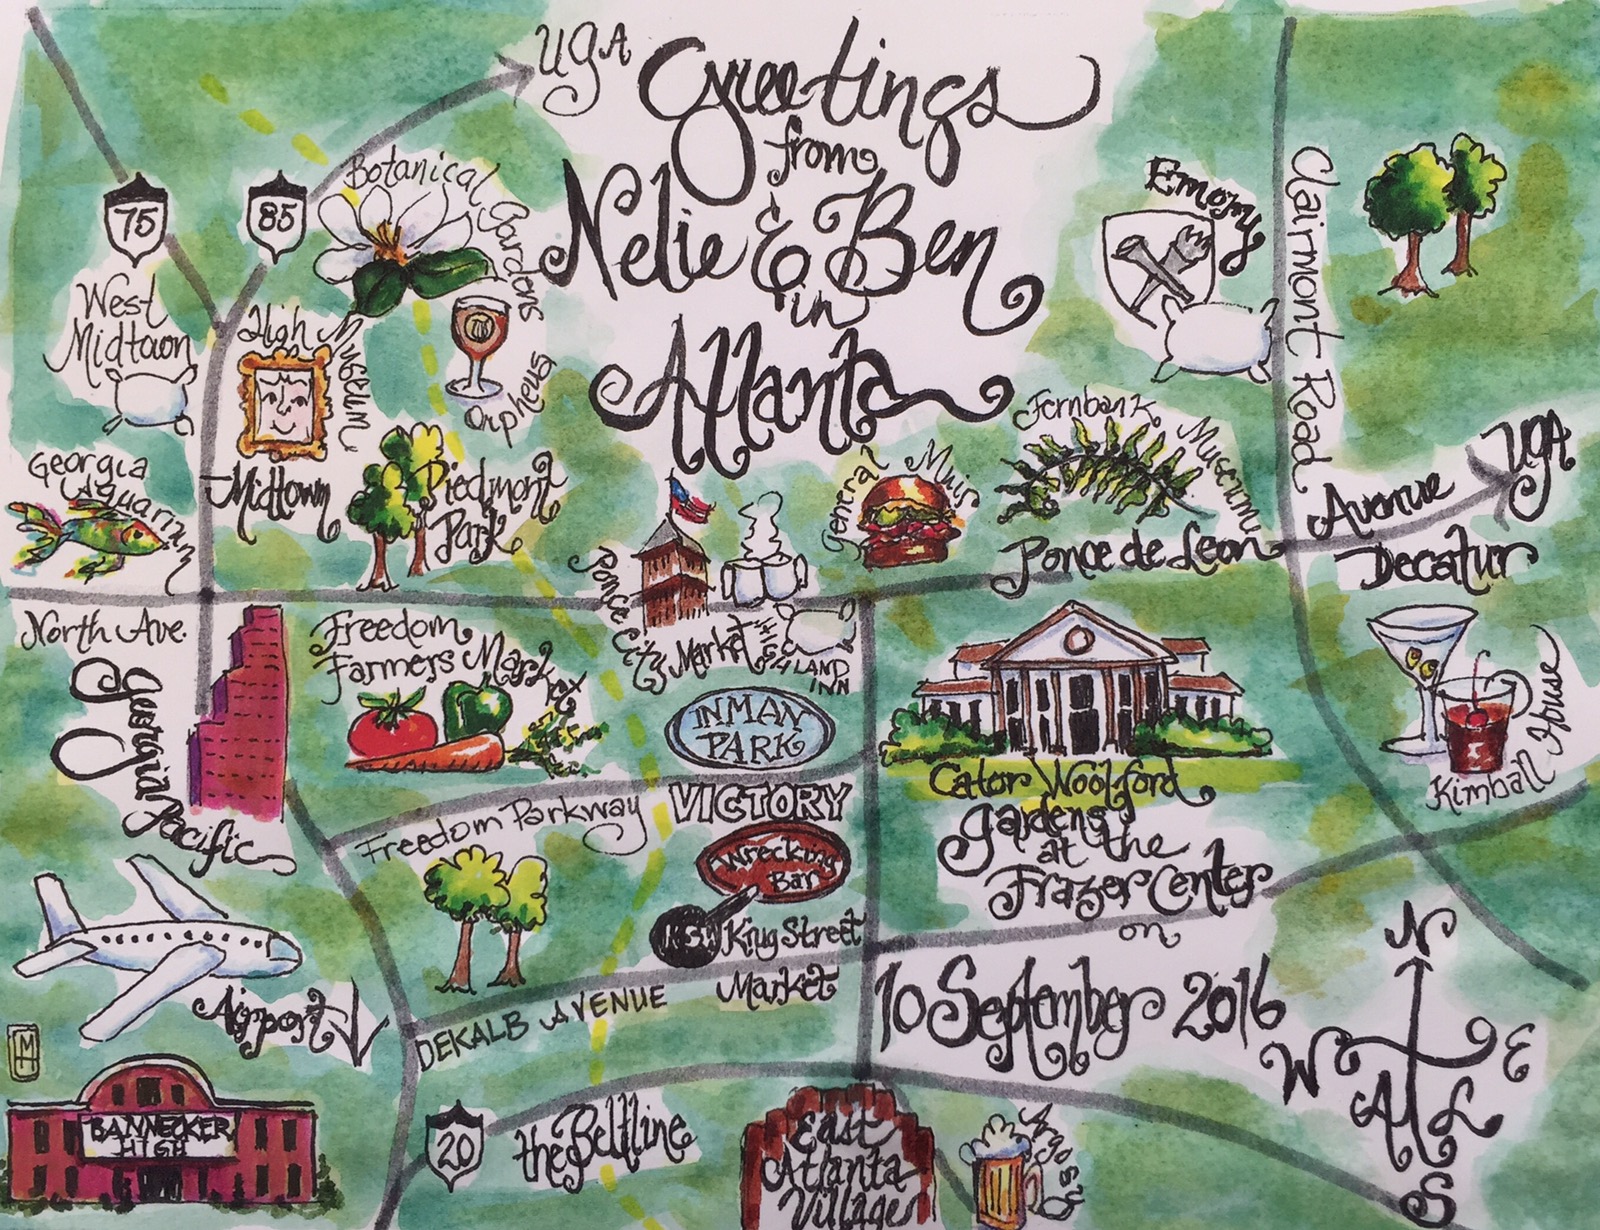 UGA
Greetings
from
Nelie & Ben
in
Atlanta
75
85
Botanical Gardens
Emory
Clairmont Road
West
Midtown
High Museum
Orpheus
Georgia
Aquarium
Midtown
Piedmont
Park
General Muir
Fernbank Museum
Ponce de Leon
Avenue
UGA
Decatur
North Ave.
Georgia Pacific
Freedom
Farmers Market
Ponce City Market
HIGHLAND
INN
INMAN
PARK
Kimball House
Cator Woolford
Gardens
at the
Frazer Center
on
10 September 2016
Freedom Parkway
VICTORY
Wrecking
Bar
KSM
Krog Street
Market
Airport
DEKALB AVENUE
MH
BANNECKER
HIGH
20
the Beltline
East
Atlanta
Village
Argosy
N
W
E
S
ATL